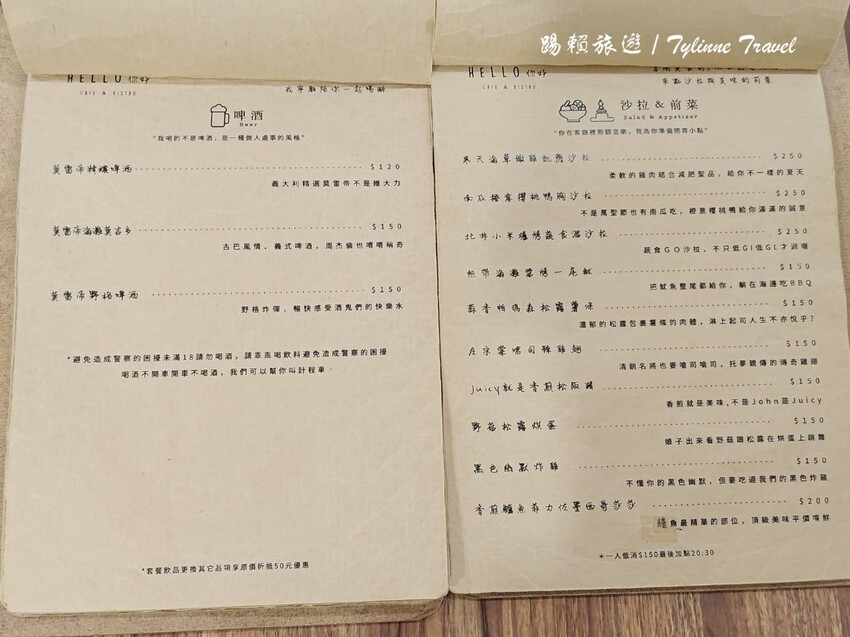 踢賴旅遊 / Tylinne Travel
HELLO 你好
CAFE & BISTRO
我寧願陪你一起喝醉
啤酒
Beer
"我喝的不是啤酒，是一種做人處事的風格"
莫雷帝精釀啤酒 $120
義大利精選莫雷帝不是維大力
莫雷帝海灘莫吉多 $150
古巴風情、義式啤酒，周杰倫也嘖嘖稱奇
莫雷帝野格啤酒 $150
野格炸彈，暢快感受酒鬼們的快樂水
*避免造成警察的困擾未滿18請勿喝酒，請乖乖喝飲料避免造成警察的困擾
喝酒不開車開車不喝酒，我們可以幫你叫計程車。
*套餐飲品更換其它品項享原價折抵50元優惠
HELLO 你好
CAFE & BISTRO
來點沙拉與美味的前菜
沙拉&前菜
Salad & Appetizer
"你在客廳裡聆聽音樂，我為你準備開胃小點"
寒天海草嫩雞凱薩沙拉 $250
柔軟的雞肉結合減肥聖品，給你不一樣的夏天
南瓜橙香櫻桃鴨胸沙拉 $250
不是萬聖節也有南瓜吃，橙意櫻桃鴨給你滿滿的誠意
北非小米爐烤蔬食溫沙拉 $250
蔬食GO沙拉，不只低GI低GL才過癮
熱帶海灘炭烤一尾魷 $150
把魷魚整尾都給你，躺在海邊吃BBQ
蒜香帕瑪森松露薯條 $150
濃郁的松露包裹薯條的肉體，淋上起司人生不亦悅乎?
左宗棠嗆司辣雞翅 $150
清朝名將也要嗆司嗆司，托夢親傳的傳奇雞翅
Juicy就是香煎松阪豬 $150
香煎就是美味，不是John是Juicy
野菇松露烘蛋 $150
娘子出來看野菇跟松露在烘蛋上跳舞
黑色幽默炸雞 $150
不懂你的黑色幽默，但要吃過我們的黑色炸雞
香煎鱸魚菲力佐墨西哥莎莎 $200
鱸魚最精華的部位，頂級美味平價嚐鮮
*一人低消$150最後加點20:30